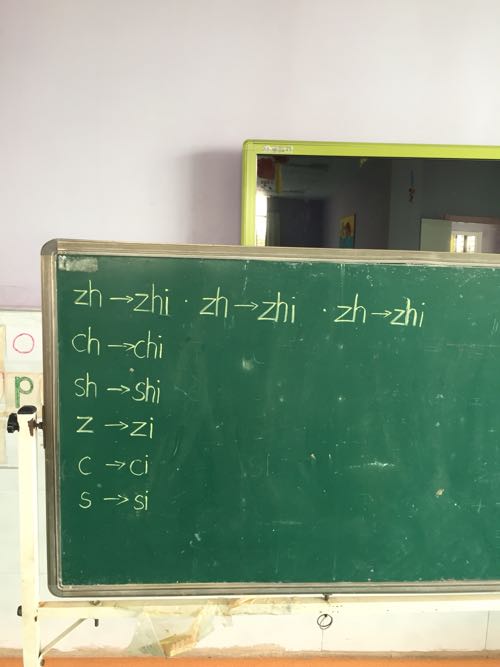 zh → zhi · zh → zhi · zh → zhi
ch → chi
sh → shi
z → zi
c → ci
s → si
O
P